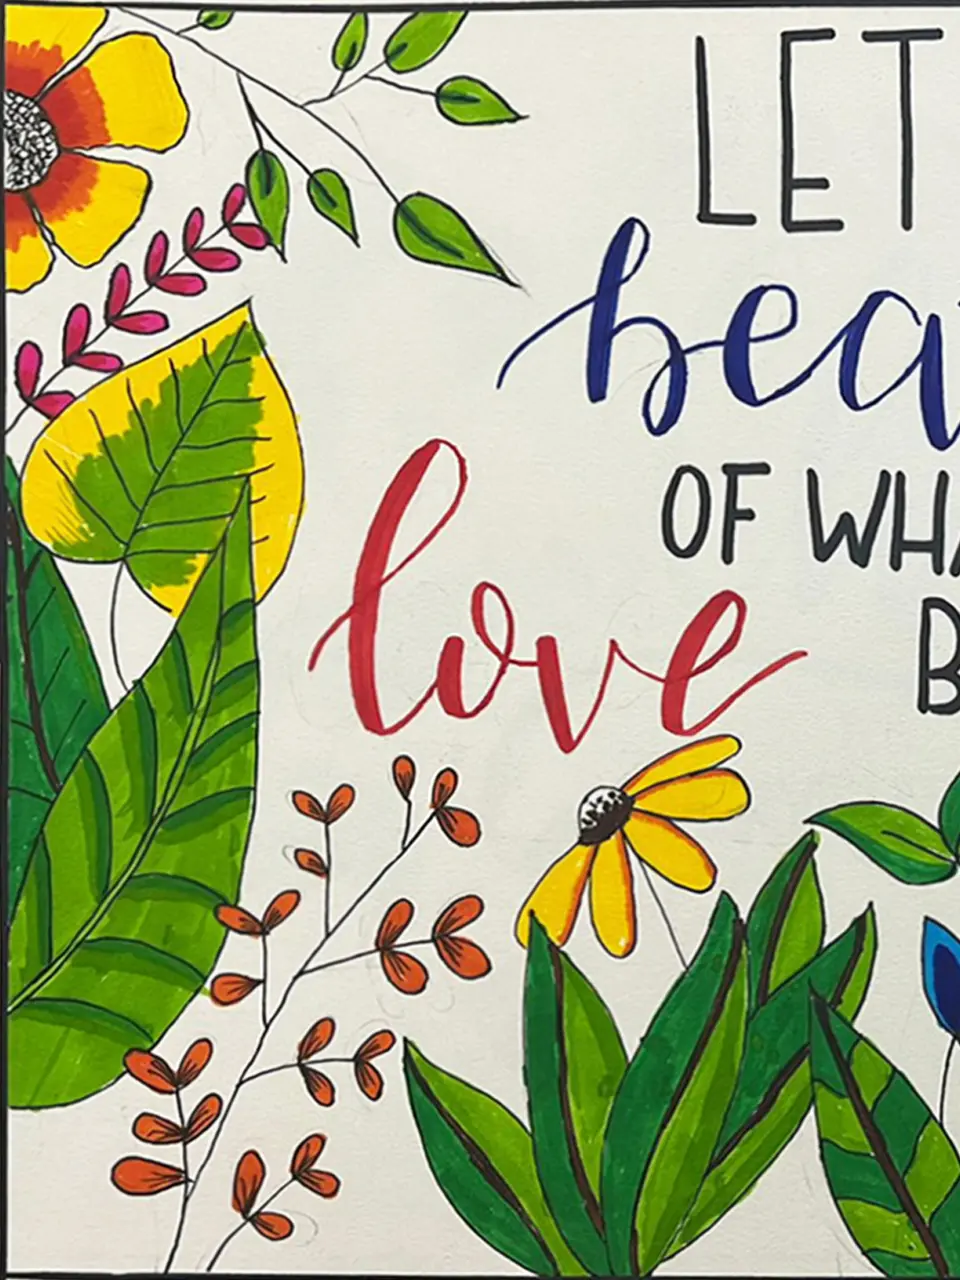 LET
bea
OF WHA
love
B